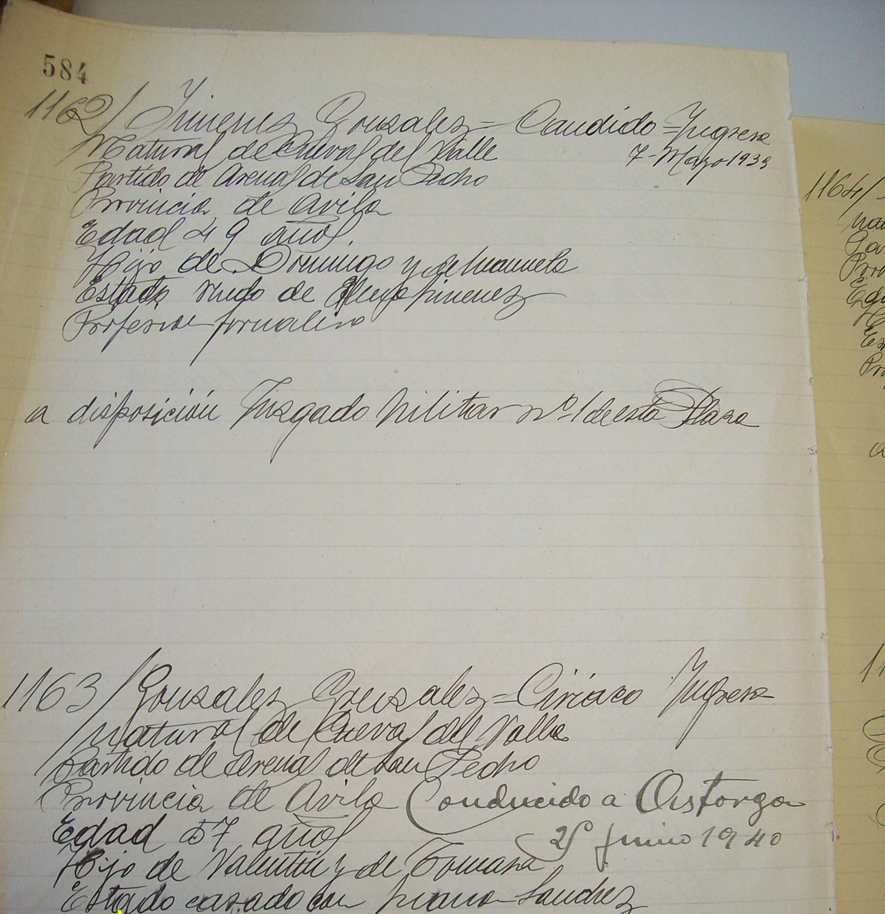 584
1162/ Jimenez Gonzalez = Candido = Ingresa
Natural de Cueval del Valle
7-Mayo 1939
Partido de Arenas de San Pedro
Provincia de Avila
Edad 49 años
Hijo de Domingo y de Manuela
Estado viudo de Jimenez
Profesion jornalero
a disposición Juzgado Militar nº 1 de esta Plaza
1163/ Gonzalez Gonzalez = Ciriaco Ingresa
Natural de Cueval del Valle
Partido de Arenas de San Pedro
Provincia de Avila Conducido a Astorga
Edad 57 años
Junio 1940
Hijo de Valentin y de Tomasa
Estado casado con Juana Sanchez
1164/